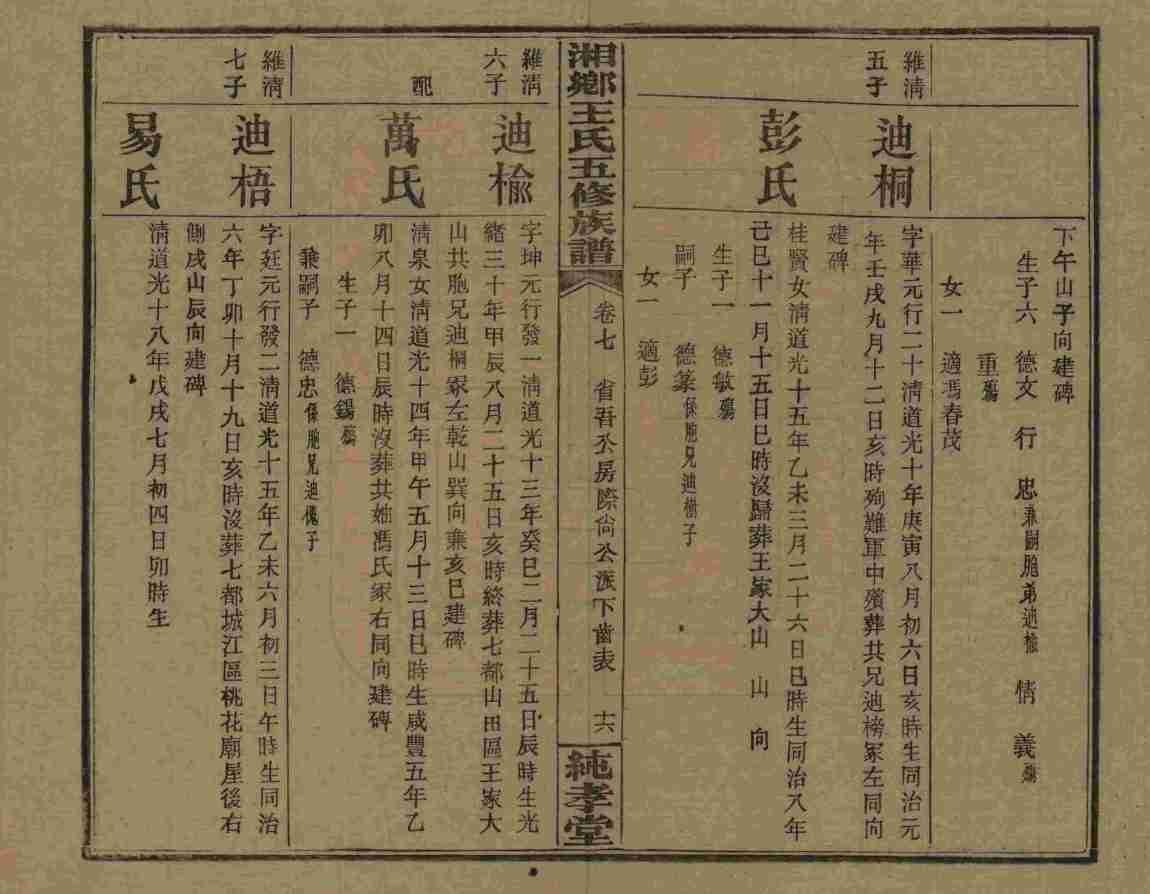 下午山子向建碑
生子六 德文 行 忠兼嗣胞弟迪楡 情 義殤
重殤
女一 適馮春茂
維淸
五子
迪桐
字華元行二十淸道光十年庚寅八月初六日亥時生同治元
年壬戌九月十二日亥時殉難軍中殯葬共兄迪榜冢左同向
建碑
彭氏
桂賢女淸道光十五年乙未三月二十六日巳時生同治八年
己巳十一月十五日巳時沒歸葬王家大山 山 向
生子一 德敏殤
嗣子 德篆係胞兄迪樹子
女一 適彭
湘鄕王氏五修族譜
卷七 省吾公房際尙公派下齒表 十六
純孝堂
維淸
六子
迪楡
字坤元行發一淸道光十三年癸巳二月二十五日辰時生光
緖三十年甲辰八月二十五日亥時終葬七都山田區王家大
山共胞兄迪桐冢左乾山巽向兼亥巳建碑
配
萬氏
淸泉女淸道光十四年甲午五月十三日巳時生咸豐五年乙
卯八月十四日辰時沒葬共妣馮氏冢右同向建碑
生子一 德錫殤
兼嗣子 德忠係胞兄迪傀子
維淸
七子
迪梧
字廷元行發二淸道光十五年乙未六月初三日午時生同治
六年丁卯十月十九日亥時沒葬七都城江區桃花廟屋後右
側戌山辰向建碑
易氏
淸道光十八年戊戌七月初四日卯時生